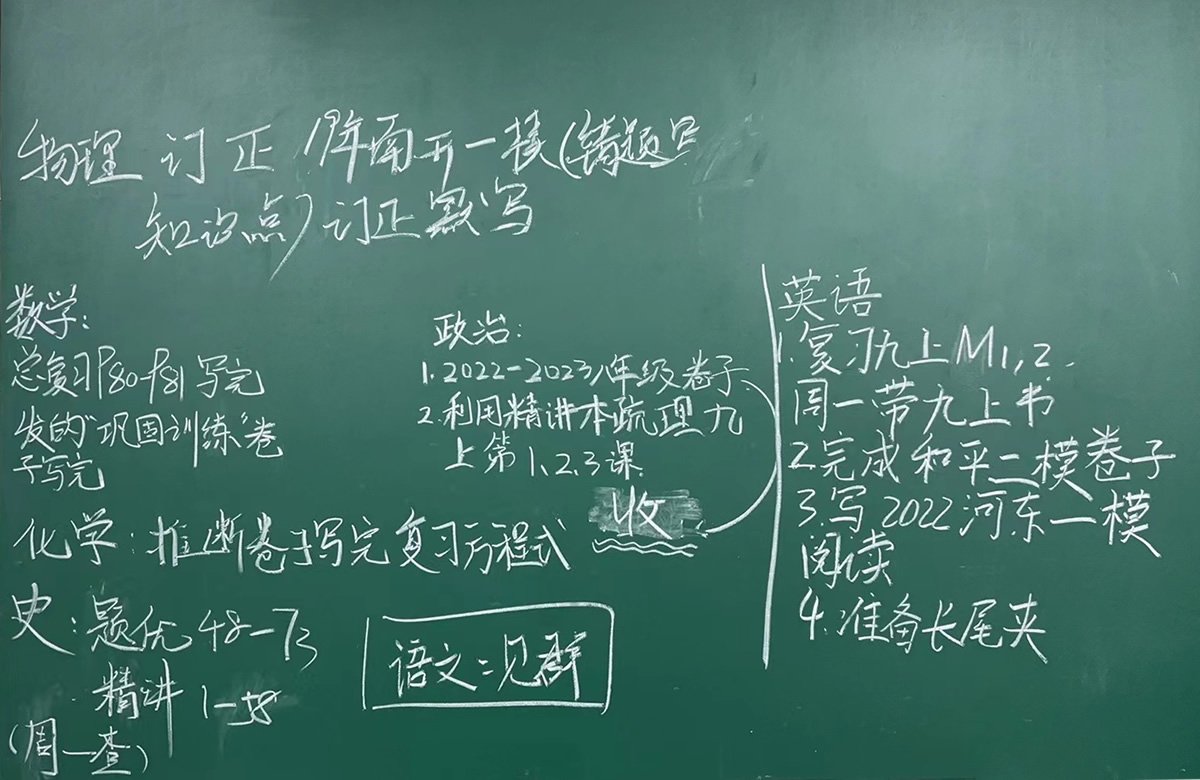 物理 订正 19年南开一模(错题写
知识点) 订正默写
数学:
总复习P80-P81 写完
发的"巩固训练"卷
子写完
政治:
1.2022-2023八年级卷子
2.利用精讲本疏理九
上第1,2,3课
收
化学:推断卷子写完 复习方程式
史:题优48-73
精讲 1-38
(周一查)
语文:见群
英语
1.复习九上M1,2.
周一带九上书
2.完成和平二模卷子
3.写2022河东一模
阅读
4.准备长尾夹